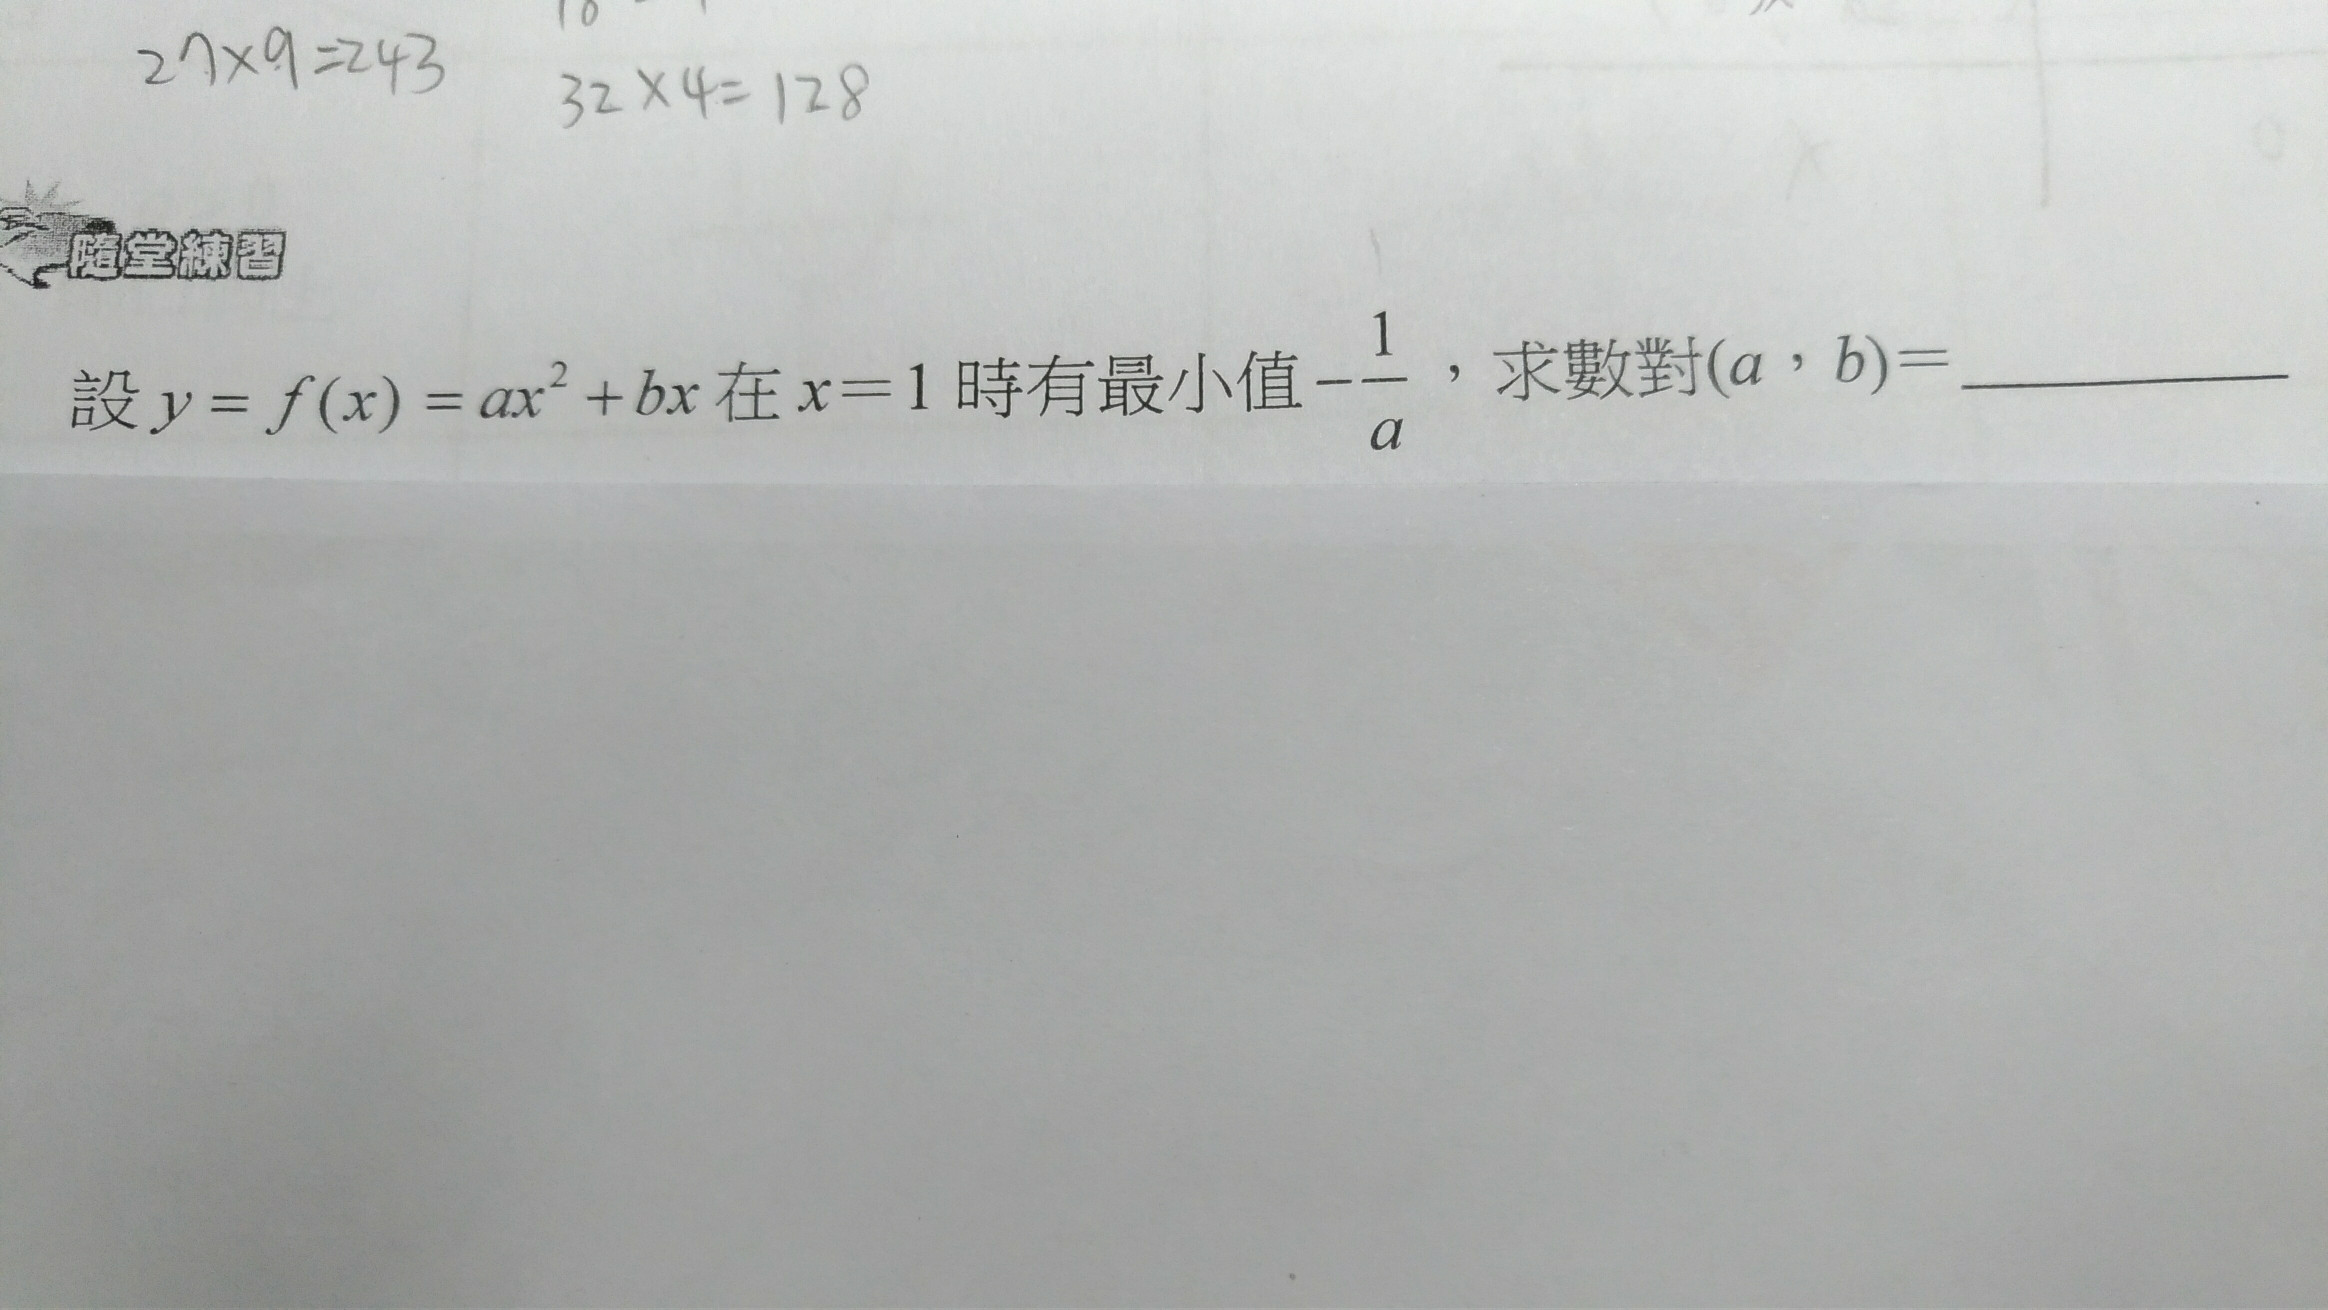 27×9=243
32×4=128
隨堂練習
設 y = f(x) = ax² + bx 在 x=1 時有最小值 -1/a，求數對(a，b)=________